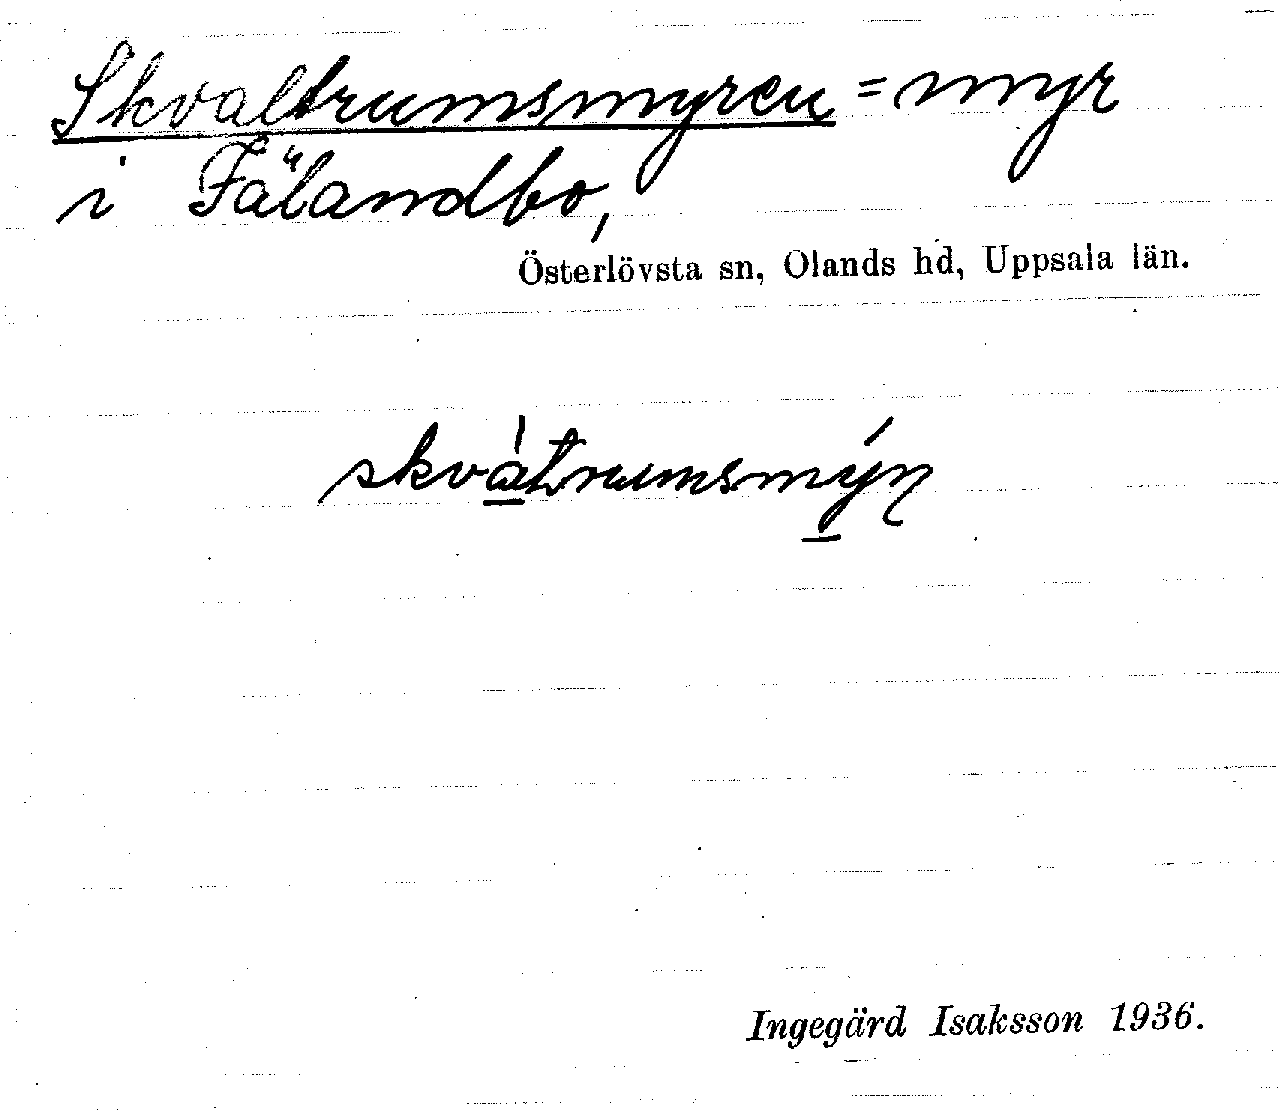 Skvaltrumsmyren = myr
i Fälandbo,
Österlövsta sn, Olands hd, Uppsala län.
skvàtrumsmýn
Ingegärd Isaksson 1936.